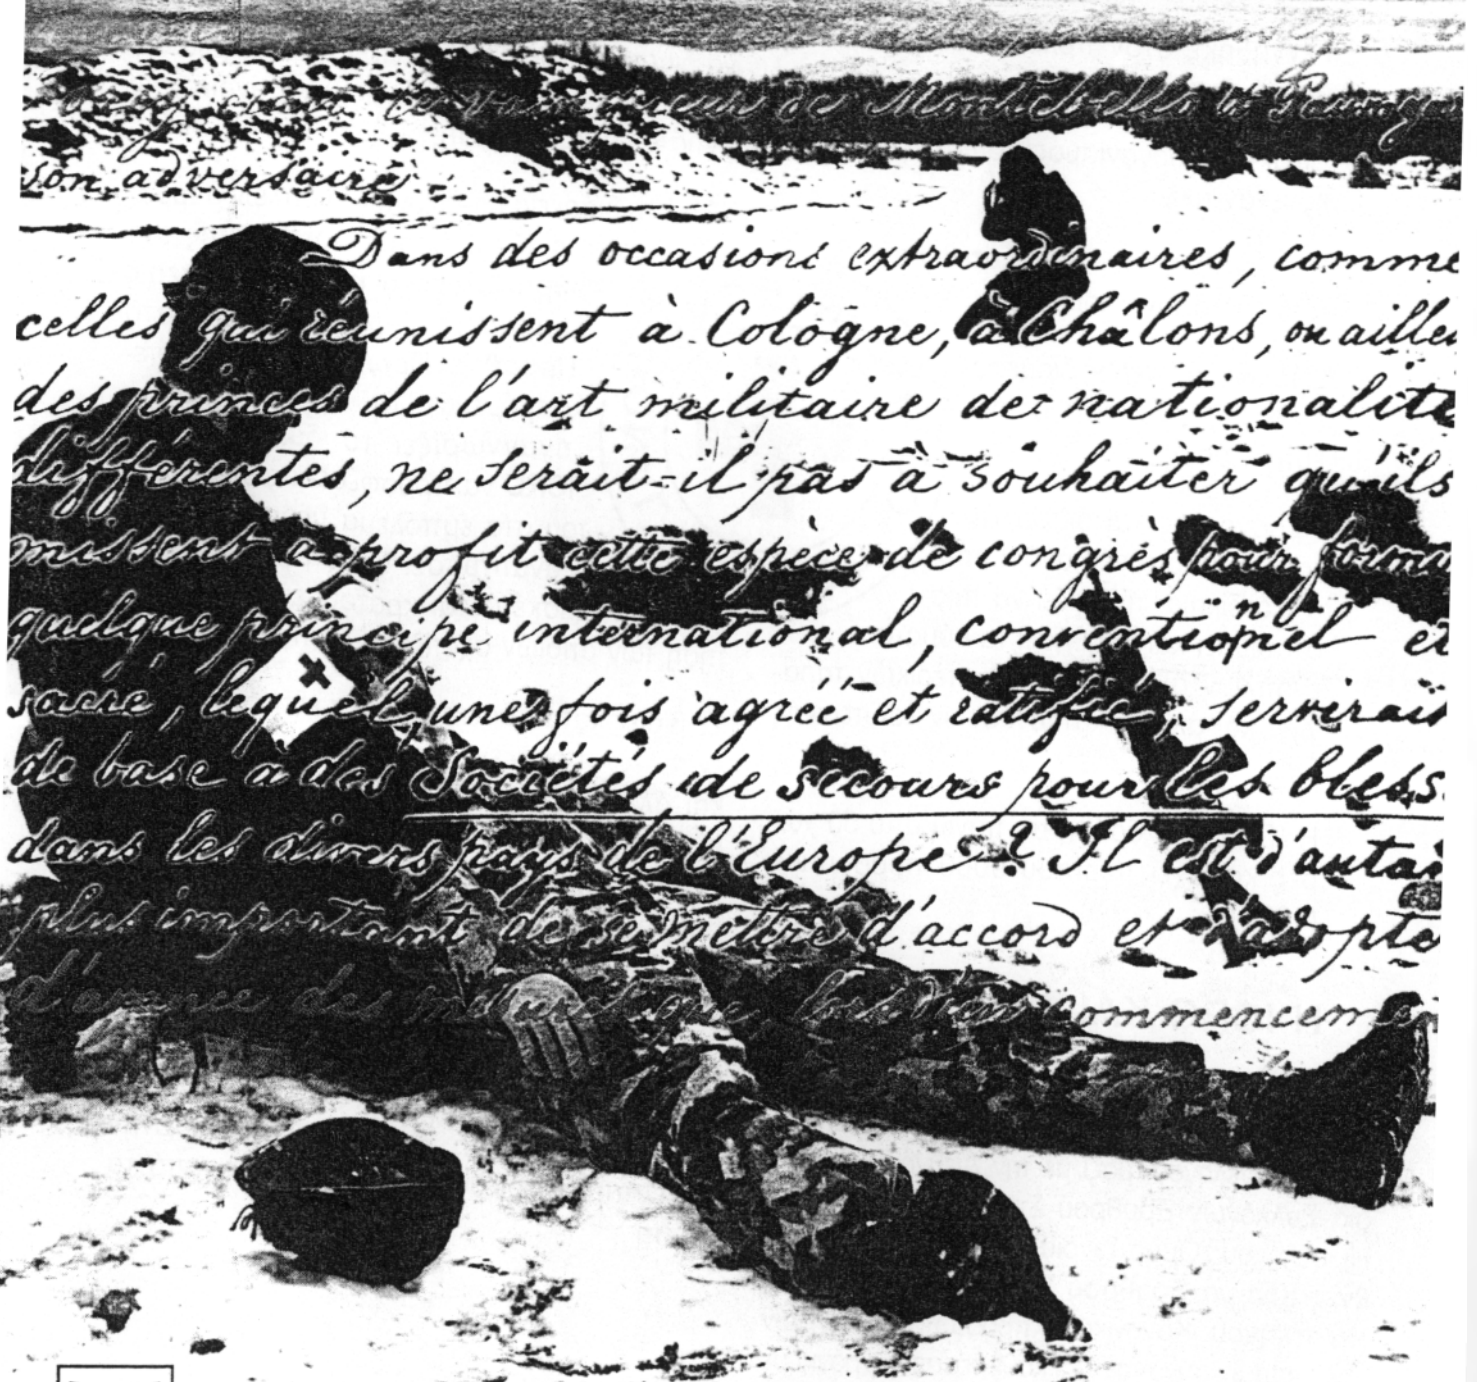 de Montebello
son adversaire
Dans des occasions extraordinaires, comme
celles qui réunissent à Cologne, à Châlons, ou aille
des princes de l'art militaire de nationalité
différentes, ne serait-il pas à souhaiter qu'ils
missent à profit cette espèce de congrès pour formu
quelque principe international, conventionnel et
sacré, lequel, une fois agréé et ratifié, servirait
de base à des Sociétés de secours pour les bless
dans les divers pays de l'Europe ? Il est d'autan
plus important de se mettre d'accord et d'adopte
d'avance des mesures commencemen